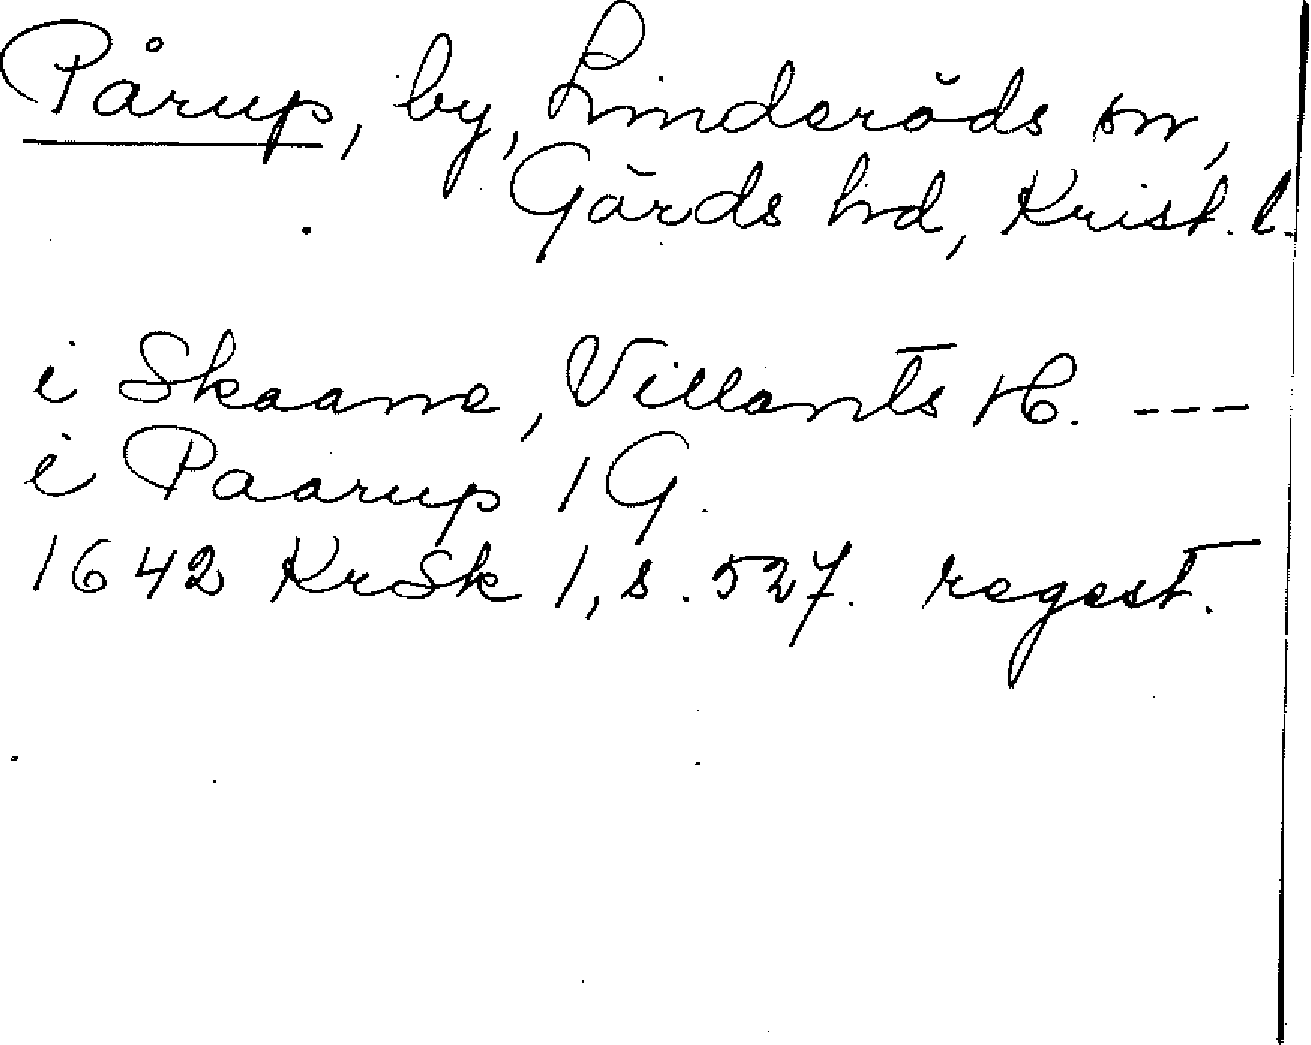 Pårup, by, Linderöds sn,
Gärds hd, Krist. l.
i Skaane, Villants H. ---
i Paarup 1 G.
1642 KrSk 1, s. 527. regest.